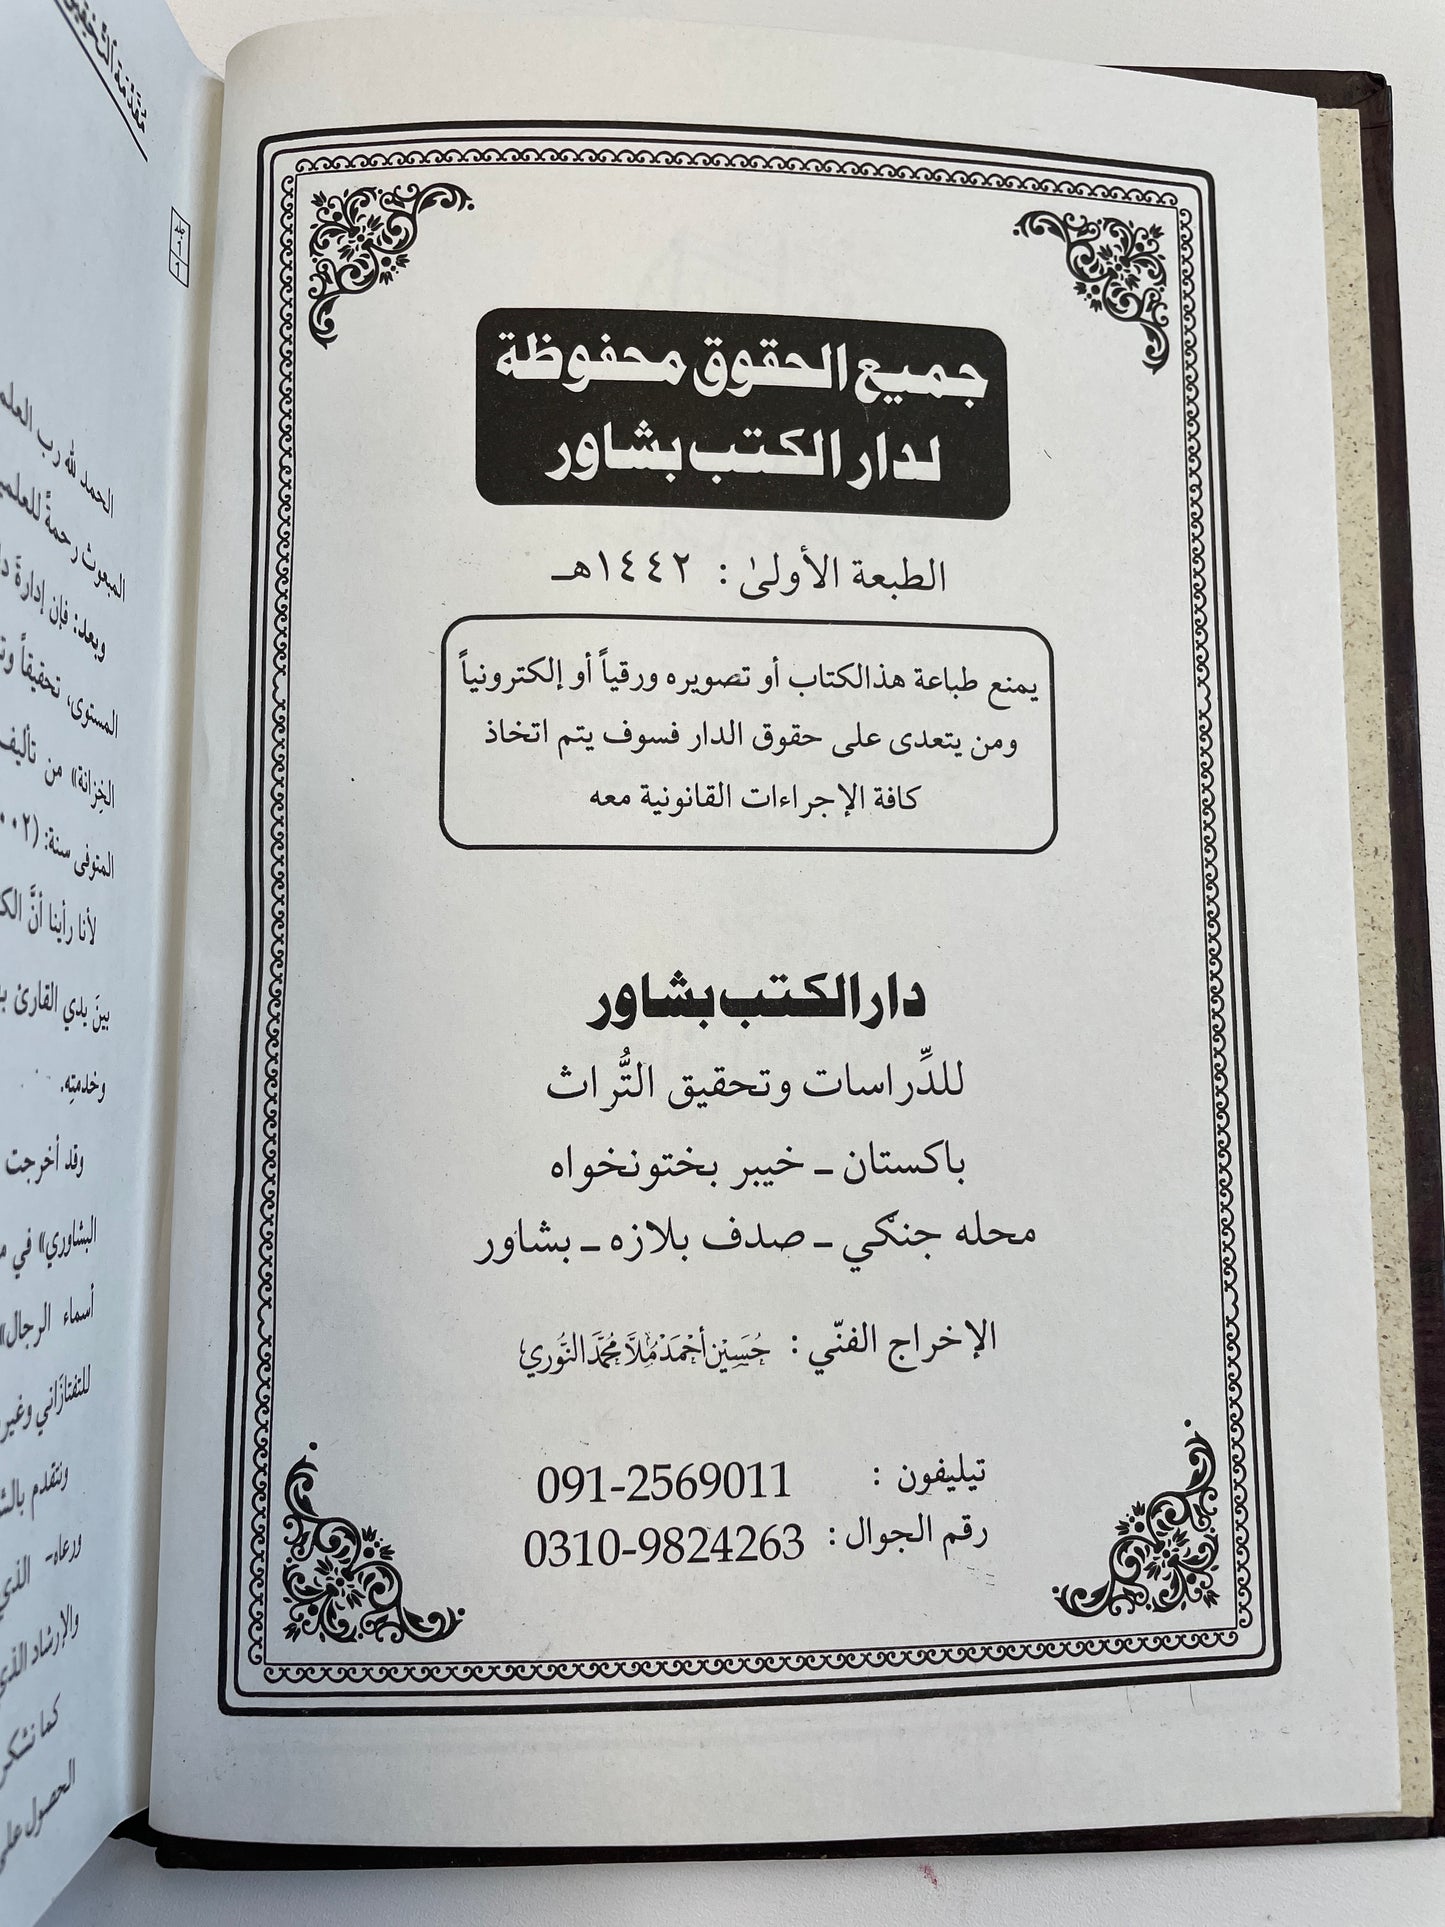 جميع الحقوق محفوظة
لدار الكتب بشاور
الطبعة الأولىٰ : ١٤٤٢هـ
يمنع طباعة هذالكتاب أو تصويره ورقياً أو إلكترونياً
ومن يتعدى على حقوق الدار فسوف يتم اتخاذ
كافة الإجراءات القانونية معه
دار الكتب بشاور
للدِّراسات وتحقيق التُّراث
باكستان ـ خيبر بختونخواه
محله جنكي ـ صدف بلازه ـ بشاور
الإخراج الفنّي : حُسَيْن أَحْمَد مُلَّا مُحَمَّد النُّوري
تيليفون : 091-2569011
رقم الجوال : 0310-9824263
الحمد لله رب
المبعوث رحمةً
وبعد: فإن إدارةَ
المستوى، تحقيقاً
الخِزانة» من تأليف
المتوفى سنة:
لأنا رأينا أنَّ
بينَ يدي القارئ
وخدمتِه.
وقد أخرجت
البشاوري» في
أسماء الرجال»
للتفتازَاني وغير
ونتقدم
ورعاه- الذي
والإرشاد الذي
كما نشكر
الحصول على